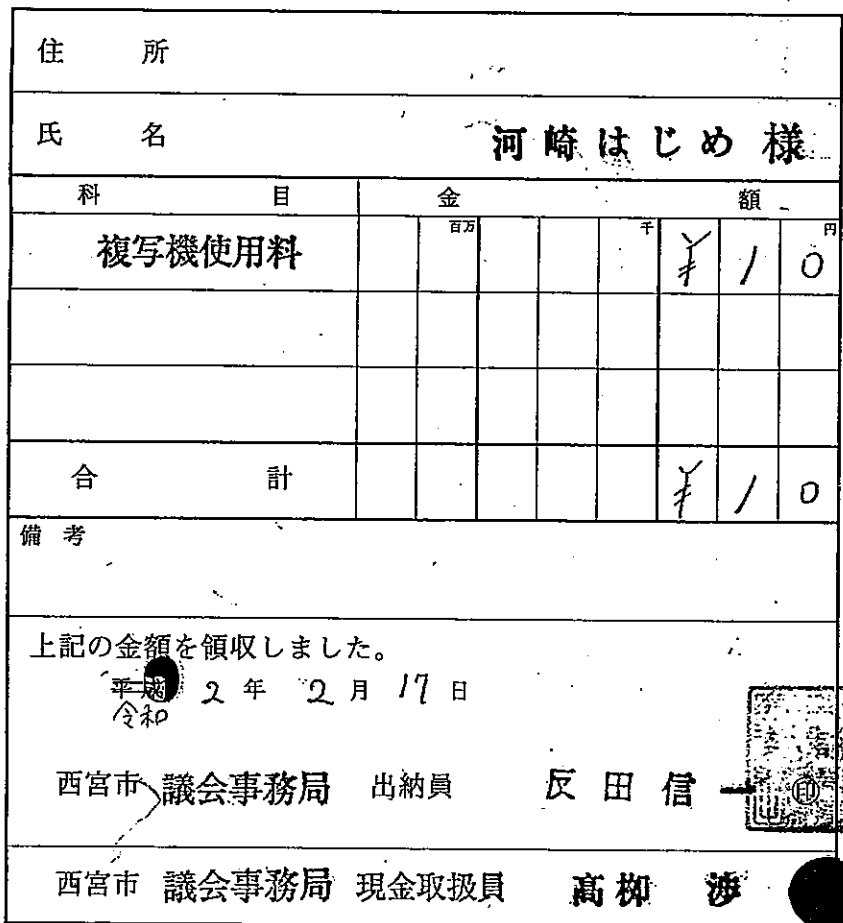 住所
氏名 河崎はじめ 様
科目 金額
百万 千 円
複写機使用料 ¥10
合計 ¥10
備考
上記の金額を領収しました。
平成
令和 2年 2月 17日
西宮市 議会事務局 出納員 反田信一 ㊞
西宮市 議会事務局 現金取扱員 髙栁 渉